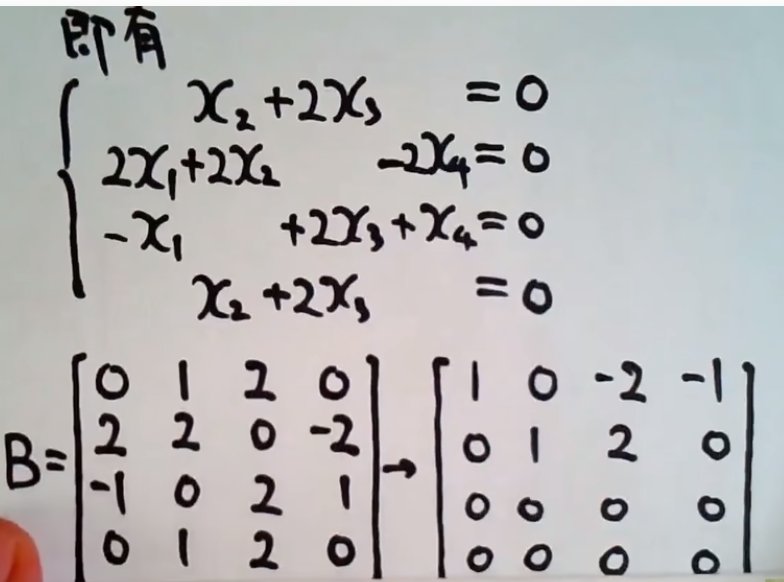 即有
x₂+2x₃ =0
2x₁+2x₂ -2x₄=0
-x₁ +2x₃+x₄=0
x₂+2x₃ =0
0 1 2 0 1 0 -2 -1
2 2 0 -2 0 1 2 0
B= →
-1 0 2 1 0 0 0 0
0 1 2 0 0 0 0 0